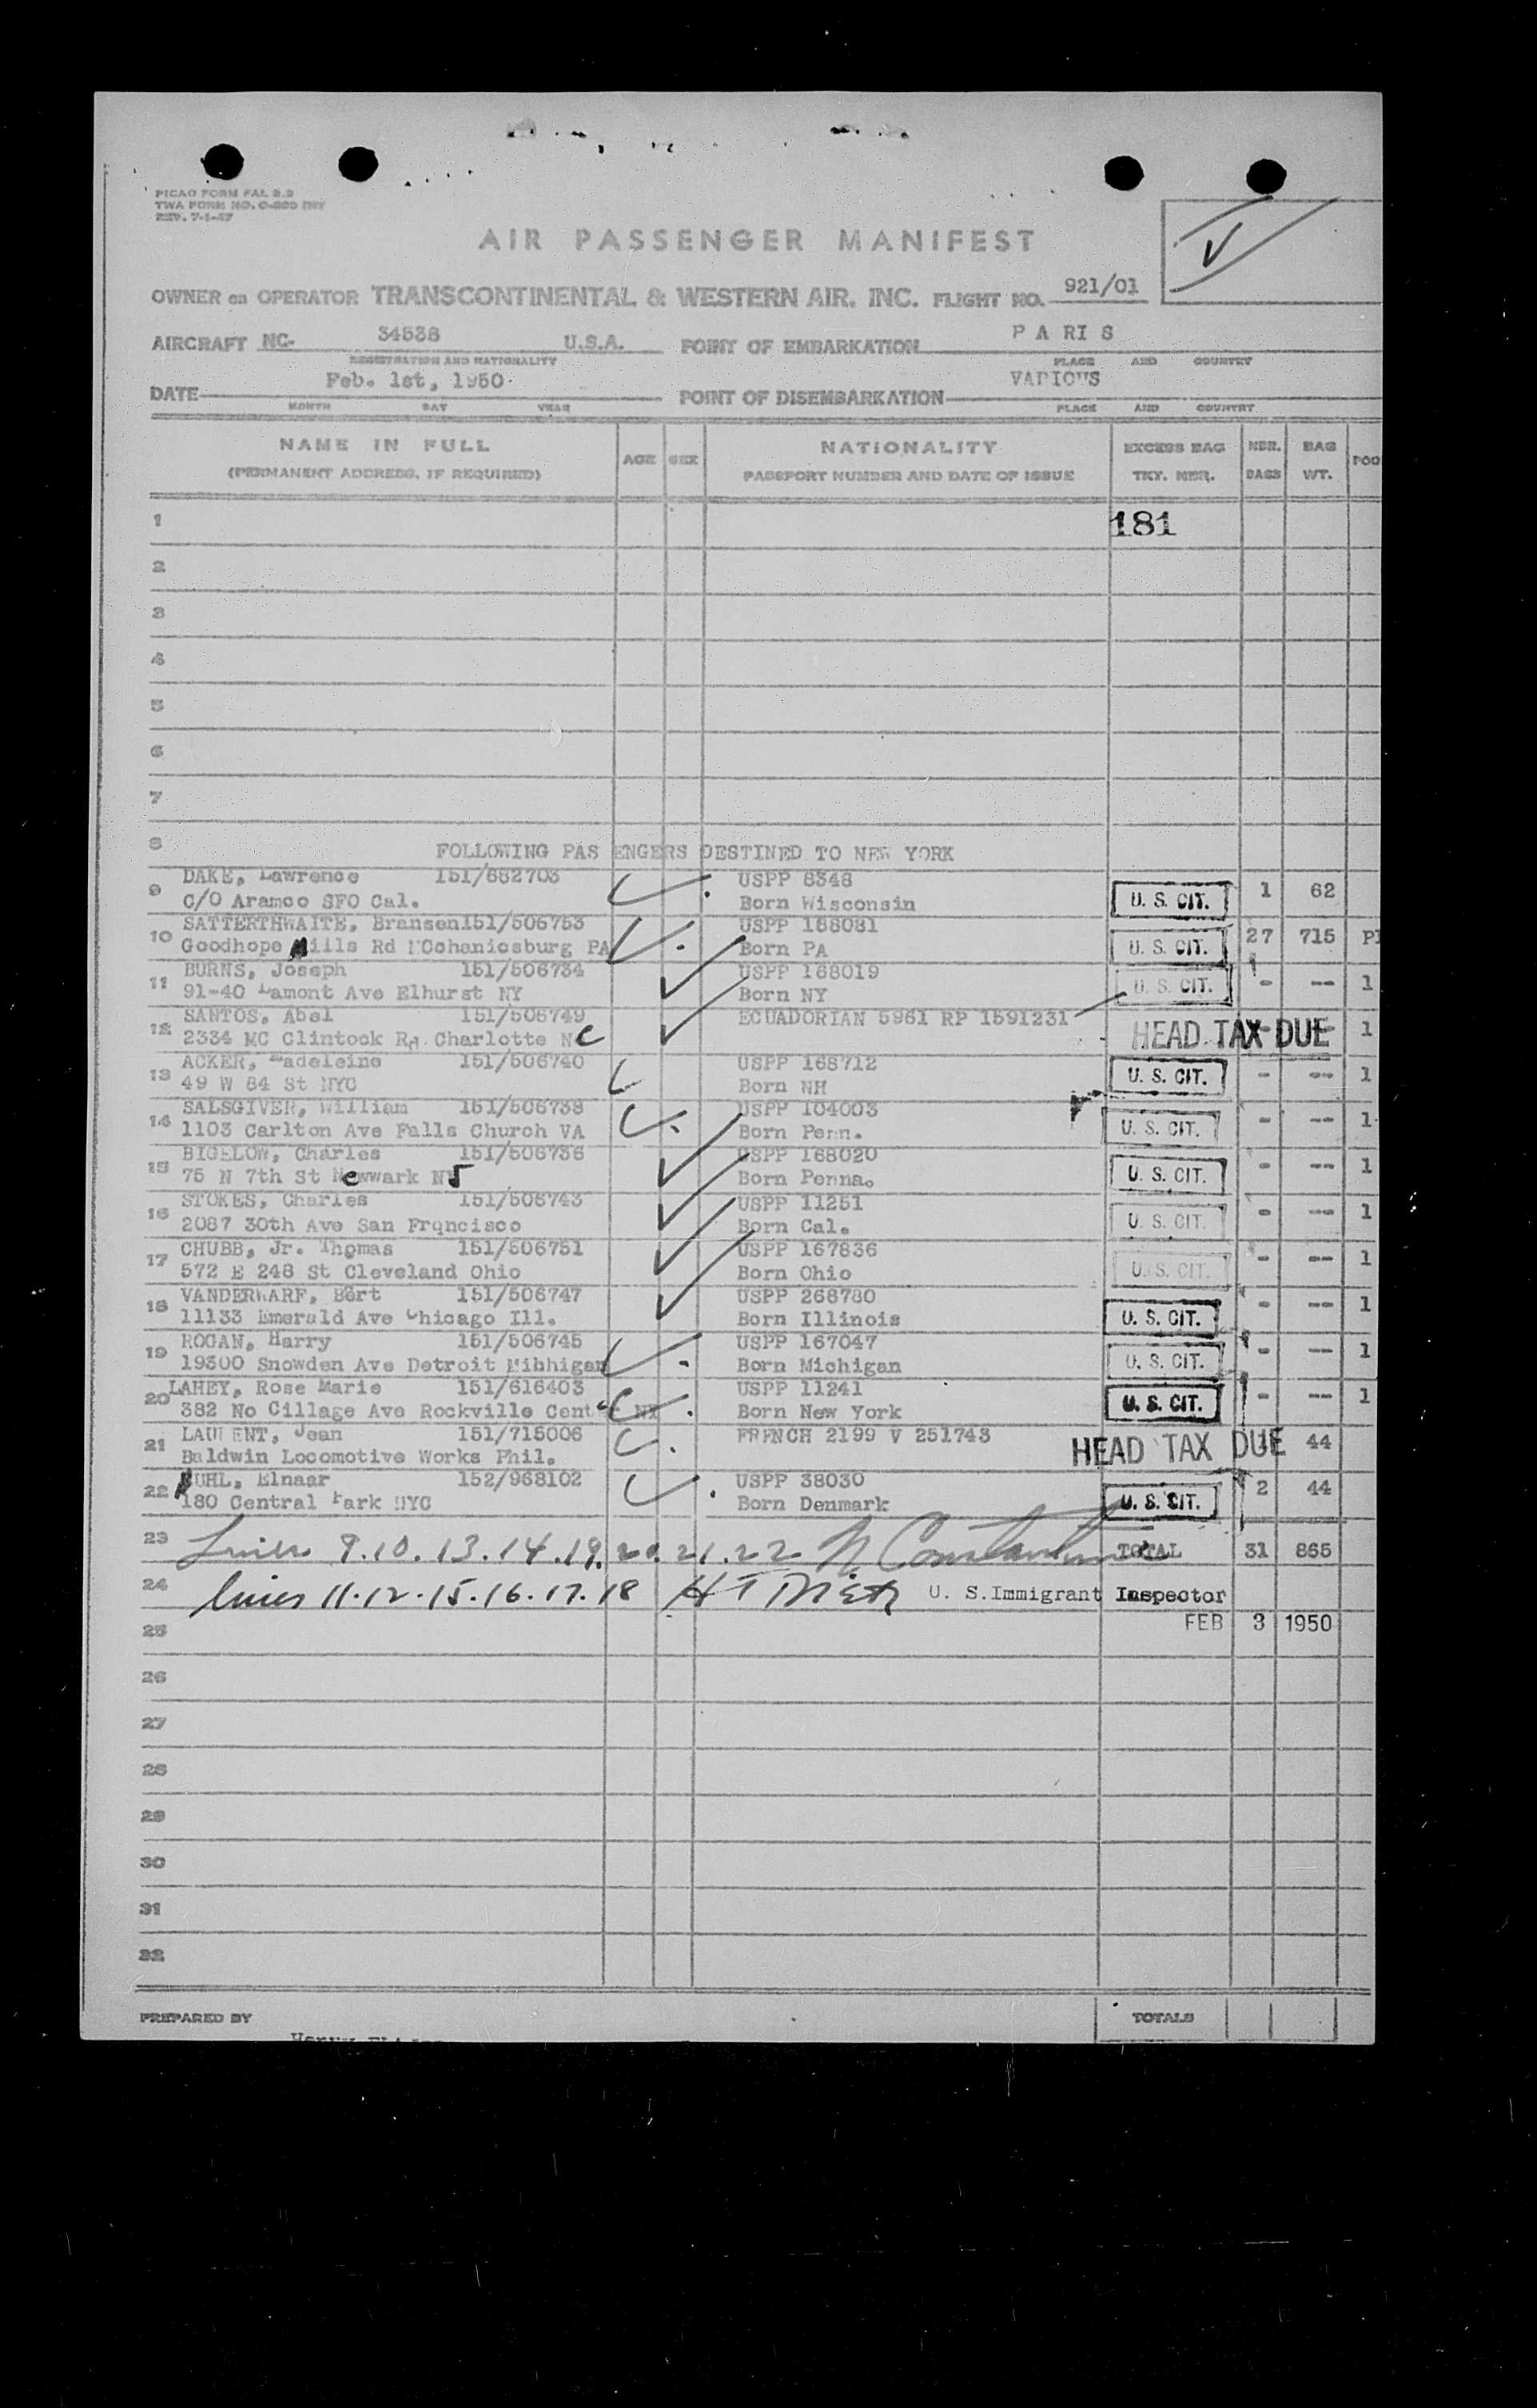 PICAO FORM FAL 2.2
TWA FORM NO. O-200 INT
REV. 7-1-47
AIR PASSENGER MANIFEST
OWNER OR OPERATOR TRANSCONTINENTAL & WESTERN AIR, INC. FLIGHT NO. 921/01
AIRCRAFT NC- 34538 U.S.A. POINT OF EMBARKATION P A RI S
REGISTRATION AND NATIONALITY PLACE AND COUNTRY
DATE Feb. 1st, 1950 POINT OF DISEMBARKATION VARIOUS
MONTH DAY YEAR PLACE AND COUNTRY
NAME IN FULL AGE SEX NATIONALITY EXCESS BAG NBR. BAG
(PERMANENT ADDRESS, IF REQUIRED) PASSPORT NUMBER AND DATE OF ISSUE TKT. NBR. BAGS WT. POO
1 181
2
3
4
5
6
7
8 FOLLOWING PAS ENGERS DESTINED TO NEW YORK
DAKE, Lawrence 151/682703 USPP 8348
9 C/O Aramco SFO Cal. Born Wisconsin U. S. CIT. 1 62
SATTERTHWAITE, Bransen151/506753 USPP 168081
10 Goodhope Mills Rd MCchanicsburg PA Born PA U. S. CIT. 27 715
BURNS, Joseph 151/506734 USPP 168019
11 91-40 Lamont Ave Elhurst NY Born NY U. S. CIT. - -- 1
SANTOS, Abel 151/506749 ECUADORIAN 5961 RP 1591231
12 2334 MC Clintock Rd Charlotte NC HEAD TAX DUE 1
ACKER, Madeleine 151/506740 USPP 168712
13 49 W 84 St NYC Born NH U. S. CIT. - -- 1
SALSGIVER, William 151/506738 USPP 104003
14 1103 Carlton Ave Falls Church VA Born Penn. U. S. CIT. - -- 1
BIGELOW, Charles 151/506736 USPP 168020
15 75 N 7th St Newwark NJ Born Penna. U. S. CIT. - -- 1
STOKES, Charles 151/506743 USPP 11251
16 2087 30th Ave San Frqncisco Born Cal. U. S. CIT. - -- 1
CHUBB, Jr. Thomas 151/506751 USPP 167836
17 572 E 248 St Cleveland Ohio Born Ohio U. S. CIT. - -- 1
VANDERWARF, Bert 151/506747 USPP 268780
18 11133 Emerald Ave Chicago Ill. Born Illinois U. S. CIT. - -- 1
ROGAN, Harry 151/506745 USPP 167047
19 19300 Snowden Ave Detroit Mibhigan Born Michigan U. S. CIT. - -- 1
LAHEY, Rose Marie 151/616403 USPP 11241
20 382 No Cillage Ave Rockville Center NY Born New York U. S. CIT. - -- 1
LAURENT, Jean 151/715006 FRENCH 2199 V 251743
21 Baldwin Locomotive Works Phil. HEAD TAX DUE 44
UHL, Elnaar 152/968102 USPP 38030
22 180 Central Park NYC Born Denmark U. S. CIT. 2 44
23 Lines 9.10.13.14.19.20.21.22 TOTAL 31 865
24 lines 11.12.15.16.17.18 U. S. Immigrant Inspector
25 FEB 3 1950
26
27
28
29
30
31
32
PREPARED BY TOTALS